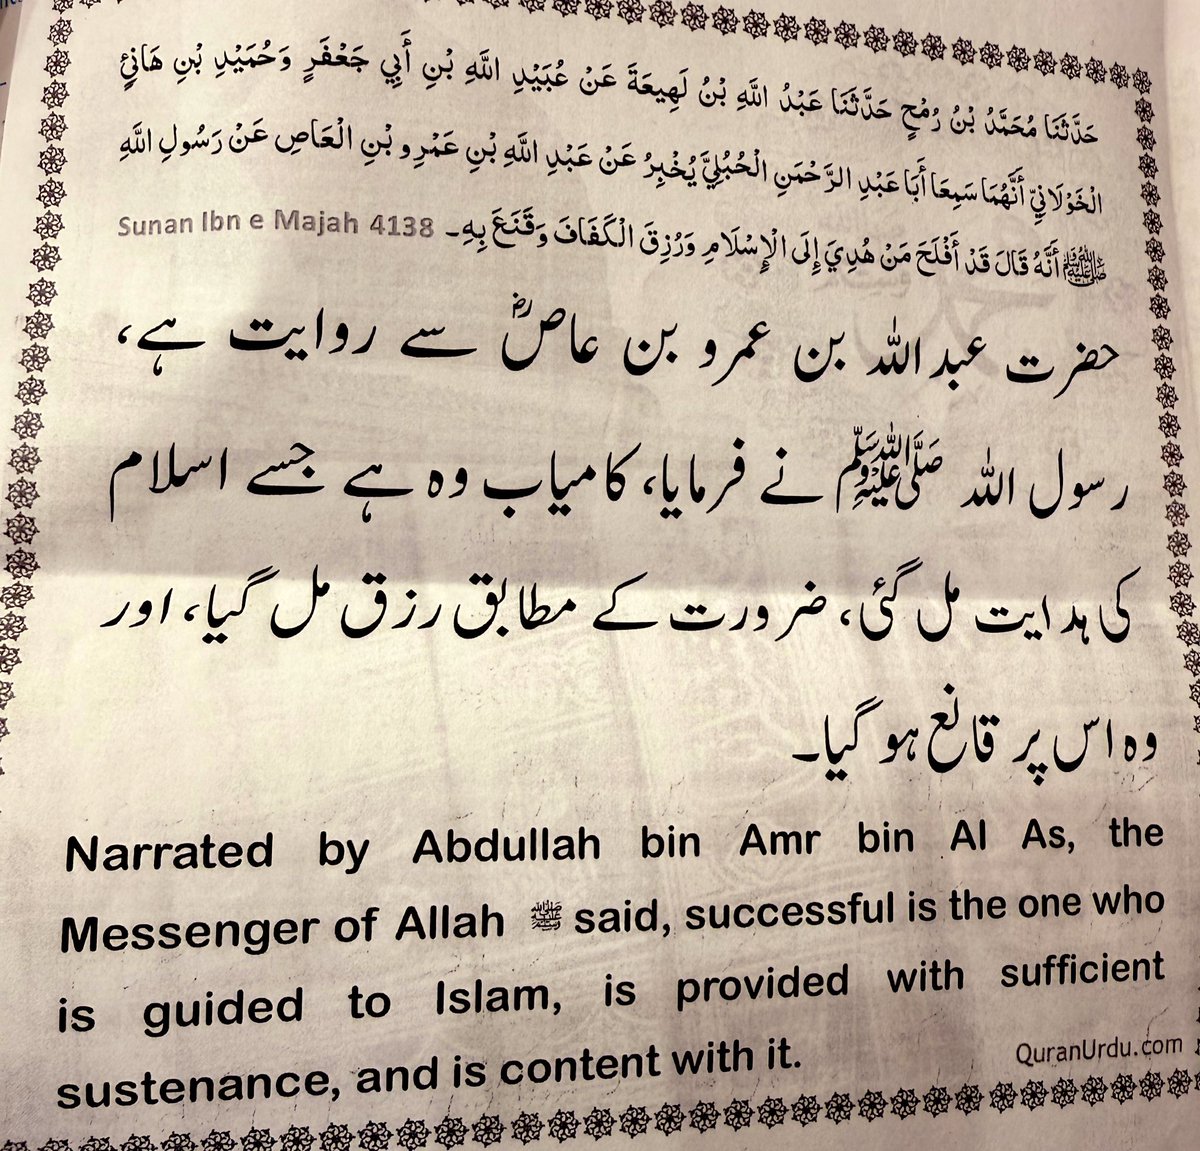 حَدَّثَنَا مُحَمَّدُ بْنُ رُمْحٍ حَدَّثَنَا عَبْدُ اللَّهِ بْنُ لَهِيعَةَ عَنْ عُبَيْدِ اللَّهِ بْنِ أَبِي جَعْفَرٍ وَحُمَيْدِ بْنِ هَانِئٍ
الْخَوْلَانِيِّ أَنَّهُمَا سَمِعَا أَبَا عَبْدِ الرَّحْمَنِ الْحُبُلِيَّ يُخْبِرُ عَنْ عَبْدِ اللَّهِ بْنِ عَمْرِو بْنِ الْعَاصِ عَنْ رَسُولِ اللَّهِ
ﷺ أَنَّهُ قَالَ قَدْ أَفْلَحَ مَنْ هُدِيَ إِلَى الْإِسْلَامِ وَرُزِقَ الْكَفَافَ وَقَنَعَ بِهِ۔ Sunan Ibn e Majah 4138
حضرت عبداللہ بن عمرو بن عاصؓ سے روایت ہے،
رسول اللہ ﷺ نے فرمایا، کامیاب وہ ہے جسے اسلام
کی ہدایت مل گئی، ضرورت کے مطابق رزق مل گیا، اور
وہ اس پر قانع ہو گیا۔
Narrated by Abdullah bin Amr bin Al As, the
Messenger of Allah ﷺ said, successful is the one who
is guided to Islam, is provided with sufficient
sustenance, and is content with it.
QuranUrdu.com